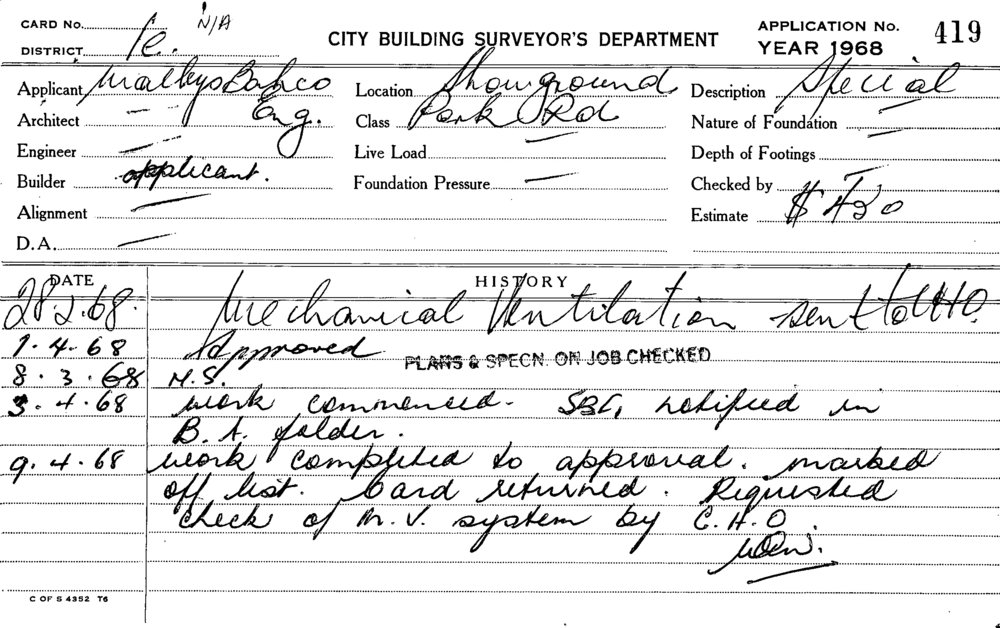 CARD No. N/A
DISTRICT 1c.
CITY BUILDING SURVEYOR'S DEPARTMENT
APPLICATION No. 419
YEAR 1968
Applicant Malleys Bahco Eng.
Architect —
Engineer —
Builder applicant.
Alignment —
D.A. —
Location Showground
Class Park Rd
Live Load —
Foundation Pressure —
Description Special
Nature of Foundation —
Depth of Footings —
Checked by —
Estimate $ 420
DATE HISTORY
28.2.68. Mechanical Ventilation sent to CHO.
1.4.68 Approved PLANS & SPECN. ON JOB CHECKED
8.3.68 N.S.
3.4.68 work commenced. SBI, notified in
B.A. folder.
9.4.68 work completed to approval. marked
off list. Card returned. Requested
check of M.V. system by C.H.O.
C OF S 4352 T6